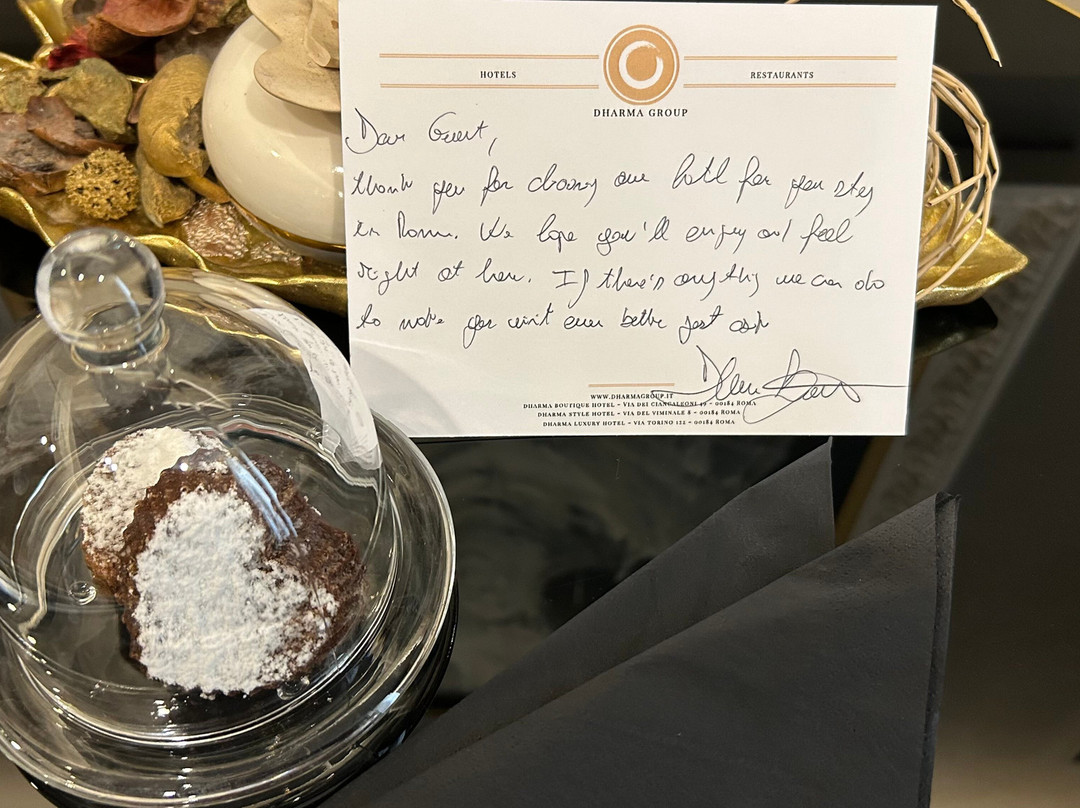 HOTELS
RESTAURANTS
DHARMA GROUP
Dear Guest,
thank you for choosing our hotel for your stay
in Rome. We hope you'll enjoy and feel
right at home. If there's anything we can do
to make your visit even better just ask
WWW.DHARMAGROUP.IT
DHARMA BOUTIQUE HOTEL – VIA DEI CIANCALEONI 49 – 00184 ROMA
DHARMA STYLE HOTEL – VIA DEL VIMINALE 8 – 00184 ROMA
DHARMA LUXURY HOTEL – VIA TORINO 122 – 00184 ROMA